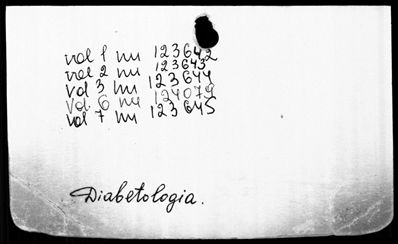 vol 1 nu 123642
vol 2 nu 123643
vol 3 nu 123644
vol. 6 nu 124079
vol 7 nu 123645
Diabetologia.